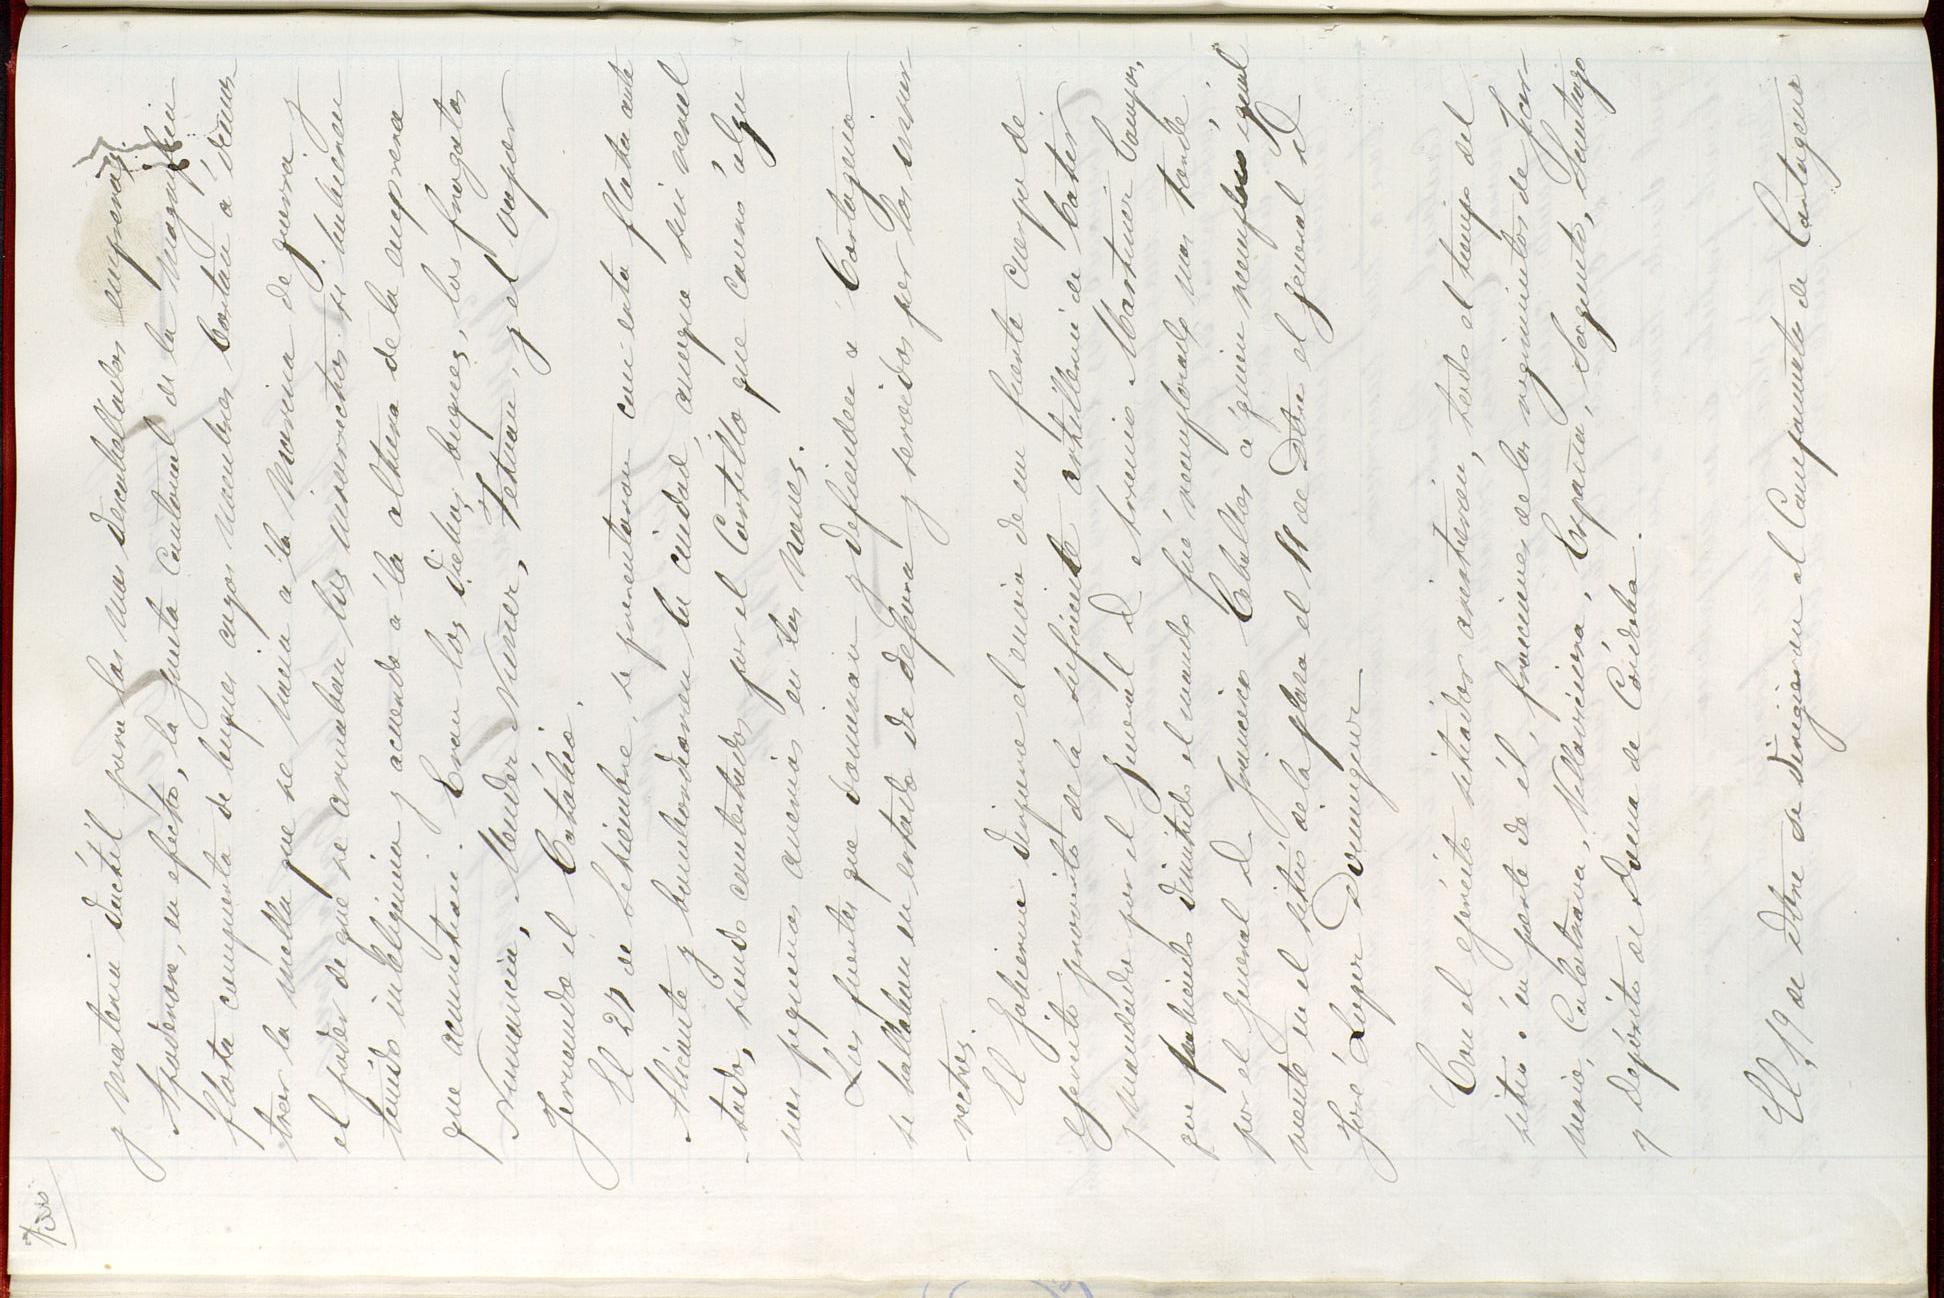 y materia dúctil para las mas descabelladas empresas.
Apodérase, en efecto, la Junta Cantonal de la magnifica
flota compuesta de buques cuyos nombres bastan a demos
trar la mella que se hacía a la Marina de guerra y
el poder de que se armaban los insurrectos si hubieran
tenido inteligencia y acuerdo a la altura de la empresa
que acometian. Eran los, dichos, buques, las fragatas
Numancia, Mendez Nuñez, Tetuan, y el vapor
Fernando el Católico.
El 27 de Setiembre, se presentaron con esta flota ante
Alicante y bombardearon la ciudad, aunque sin resul
tado, siendo contestados por el Castillo que causó algu
nas pequeñas averias en las naves.
Los fuertes que dominan y defienden a Cartagena
se hallaban en estado de defensa y servidos por los insur
rectos.
El Gobierno dispone el envio de un fuerte cuerpo de
Ejército provisto de la suficiente artillería de batir
y mandado por el General D. Arsenio Martinez Campos,
que habiendo dimitido el mando fué reemplazado mas tarde
por el General D. Francisco Ceballos a quien reemplazó igual
mente en el sitio de la plaza el 11 de Dbre el General D.
José Lopez Dominguez
Con el ejército sitiador asistieron, todo el tiempo del
sitio ó en parte de él, fracciones de los regimientos de Far
nesio, Calatrava, Villaviciosa, España, Sagunto, Santiago
y Depósito de Doma de Córdoba.
El 19 de Dbre se dirigieron al Campamento de Cartagena